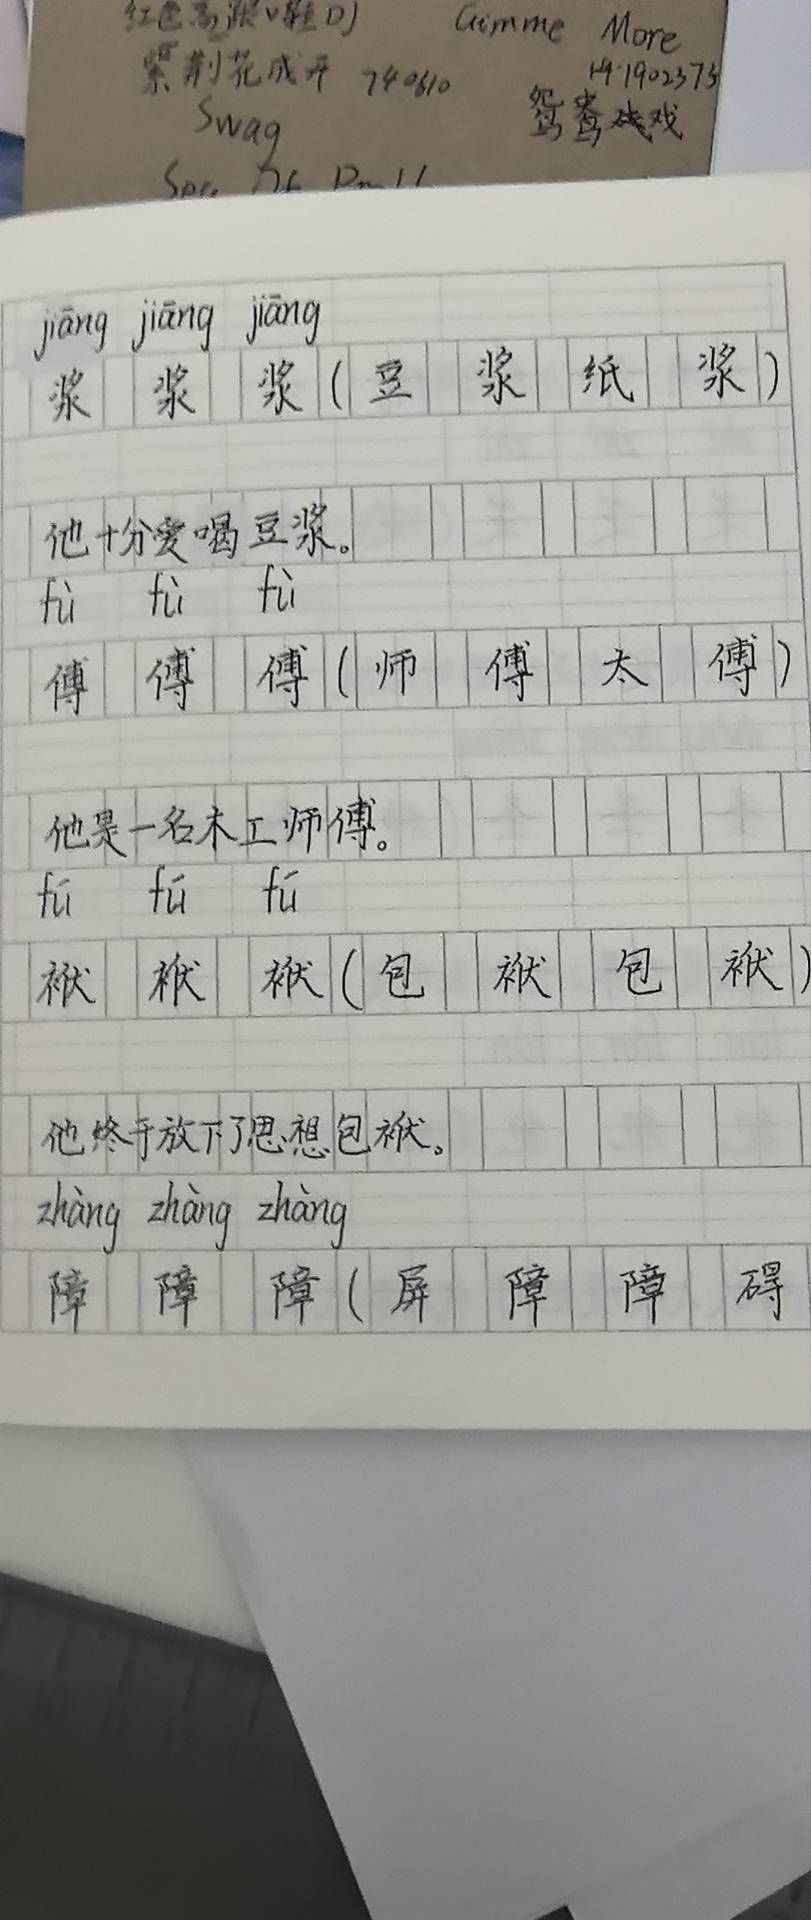 红色高跟鞋DJ Gimme More
紫荆花盛开 740610 191902373
Swag 鸳鸯戏
jiāng jiāng jiāng
浆 浆 浆(豆 浆 纸 浆)
他十分爱喝豆浆。
fù fù fù
傅 傅 傅(师 傅 太 傅)
他是一名木工师傅。
fú fú fú
袱 袱 袱(包 袱 包 袱)
他终于放下了思想包袱。
zhàng zhàng zhàng
障 障 障(屏 障 障 碍